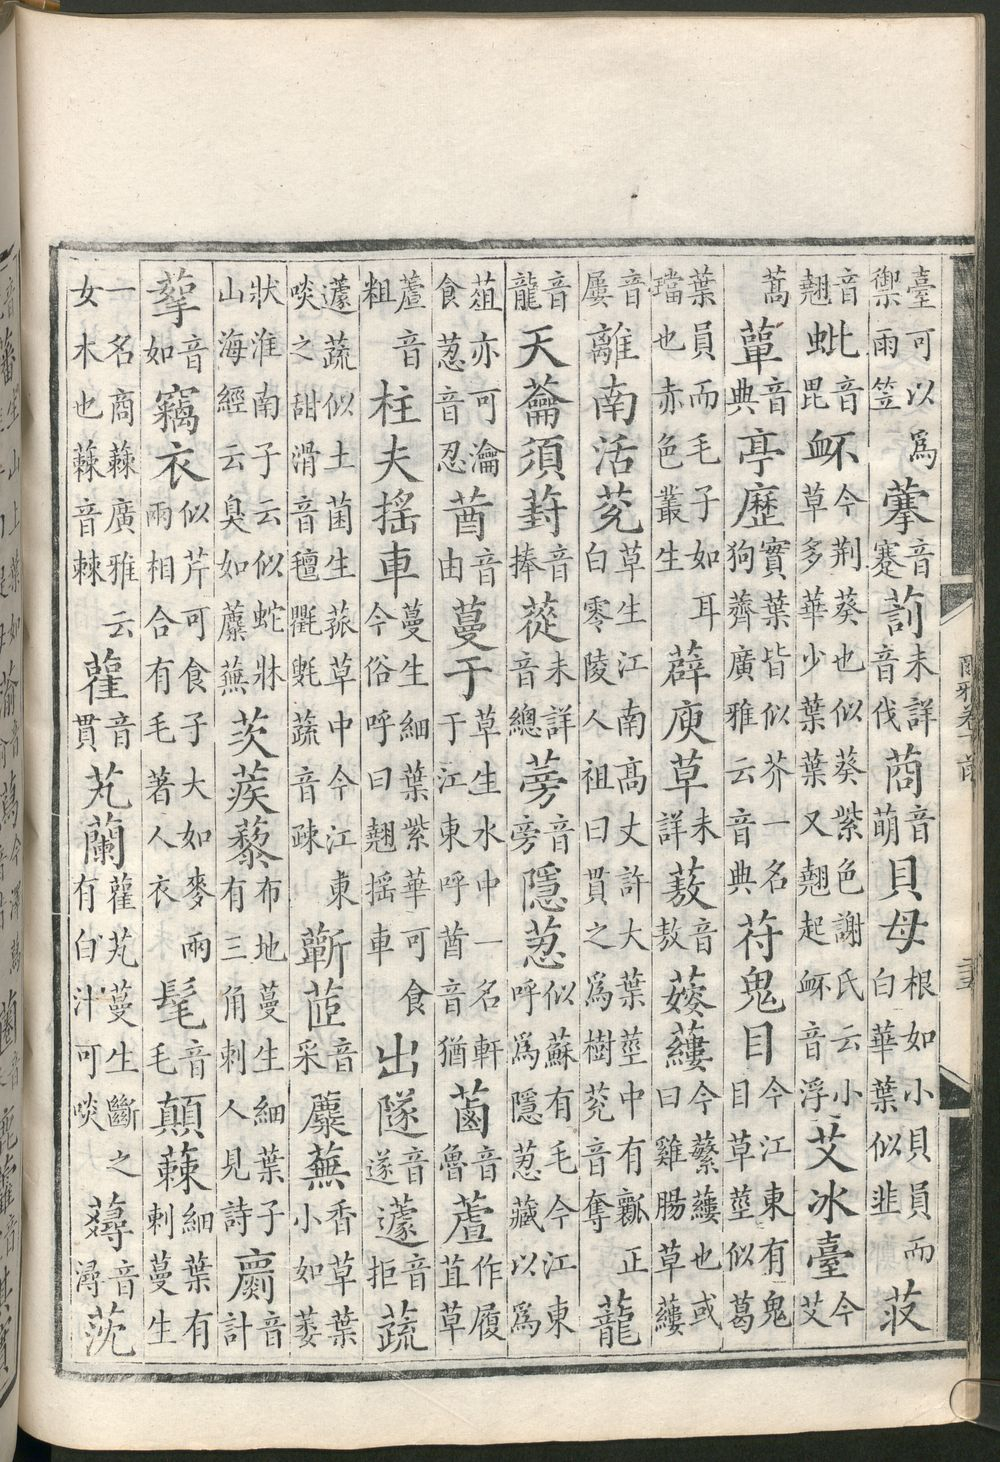 臺可以爲禦雨笠藆音蹇䓲未詳音伐莔音萌貝母根如小貝員而白華葉似韭荍
音翹蚍音毘衃今荆葵也似葵紫色謝氏云小草多華少葉葉又翹起衃音浮艾冰臺今艾
蒿蕇音典亭歷實葉皆似芥一名狗薺廣雅云音典苻鬼目今江東有鬼目草莖似葛
葉員而毛子如耳璫也赤色叢生薜庾草未詳蔜音敖䕅蔞今蘩蔞也或曰雞腸草蔞
音屢離南活莌草生江南高丈許大葉莖中有瓤正白零陵人祖曰貫之爲樹莌音奪蘢
音龍天蘥須葑音捧蓯未詳音總蒡音旁隱荵似蘇有毛今江東呼爲隱荵藏以爲
葅亦可瀹食荵音忍莤音由蔓于草生水中一名軒于江東呼莤音猶䓔音魯蔖作履苴草
蔖音粗柱夫摇車蔓生細葉紫華可食今俗呼曰翹摇車出隧音遂蘧音拒蔬
蘧蔬似土菌生菰草中今江東啖之甜滑音氊氍㲣蔬音疎蘄茝音采蘪蕪香草葉小如萎
狀淮南子云似蛇牀山海經云臭如蘪蕪茨蒺藜布地蔓生細葉子有三角刺人見詩蘮音計
蒘音如竊衣似芹可食子大如麥兩兩相合有毛著人衣髦音毛顛蕀細葉有刺蔓生
一名商蕀廣雅云女木也蕀音棘雚音貫芄蘭雚芄蔓生斷之有白汁可啖蕁音潯莐